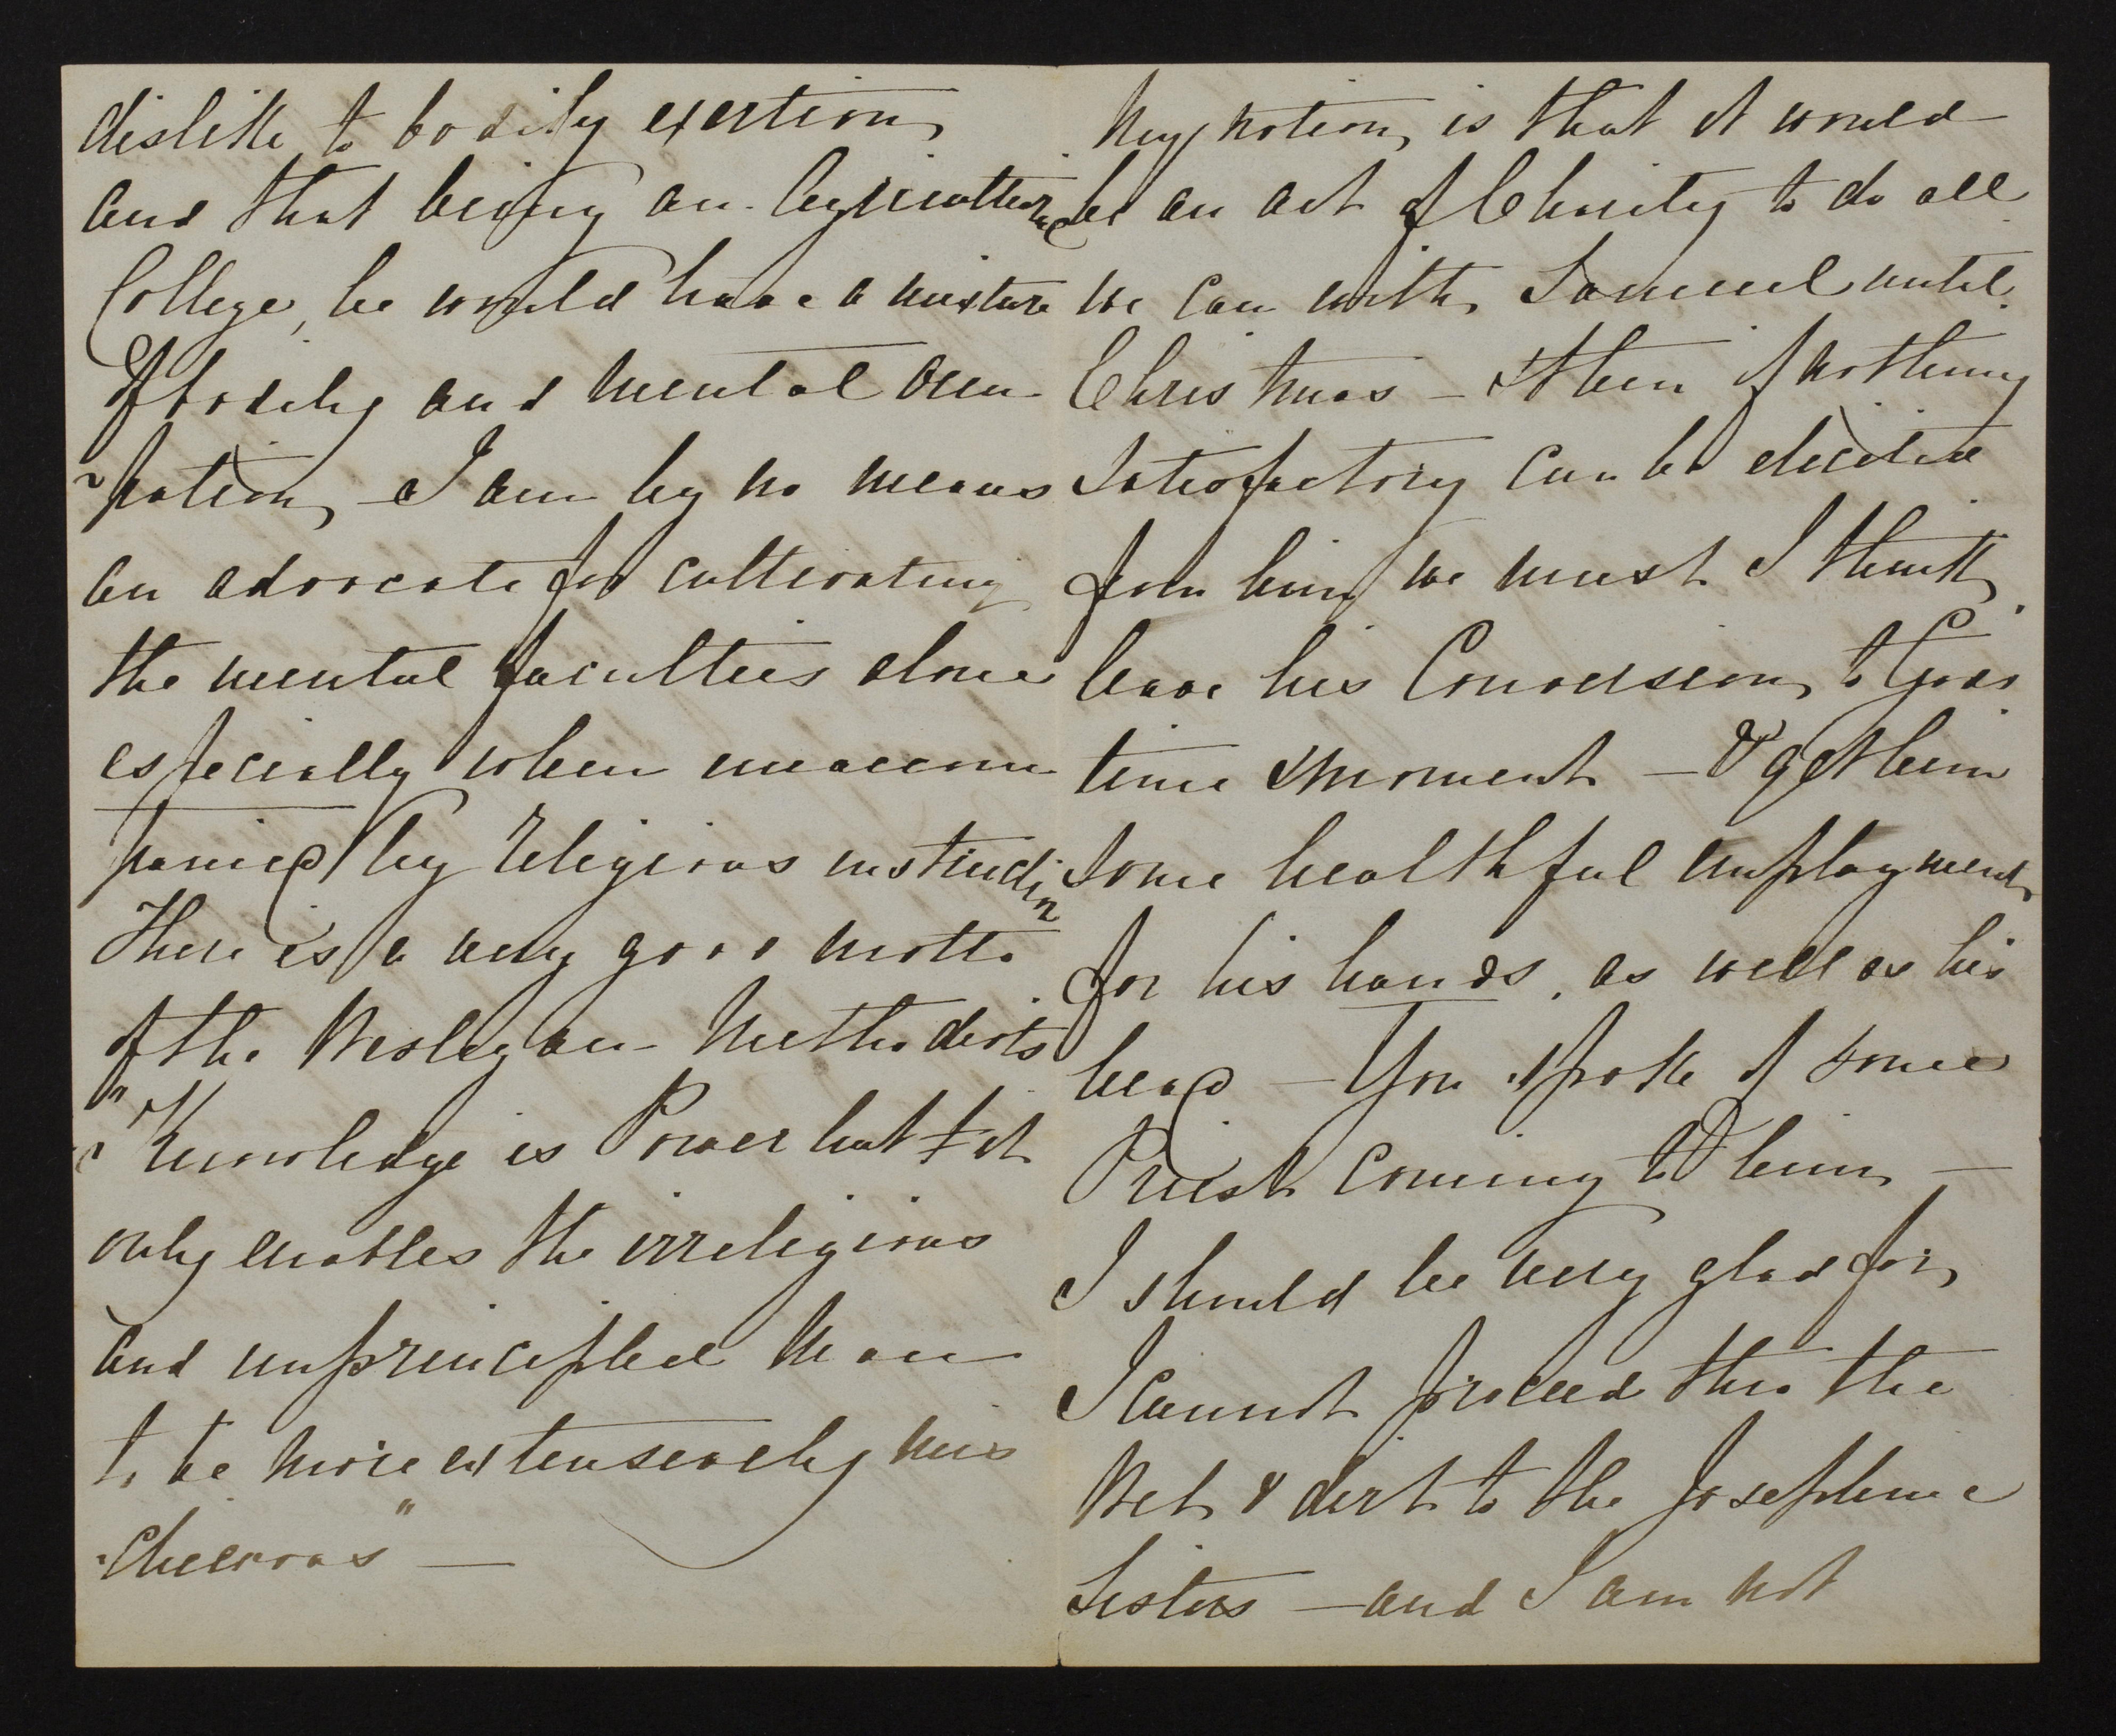 dislike to bodily exertion,
and that being an Agricultural
College, he would have a mixture
of bodily and mental occu-
-pation, I am by no means
an advocate for cultivating
the mental faculties alone
especially when unaccom
panied by religious instruction
There is a very good motto
of the Wesleyan Methodists
"Knowledge is Power but it
only enables the irreligious
and unprincipled man
to be more extensively mis
-chievous" —
My notion, is that it would
be an act of Charity to do all
we can with Samuel until
Christmas — & then if nothing
satisfactory can be elicited
from him, we must I think,
leave his Conversion, to God's
time & moment — & get him
some healthful employment,
for his hands, as well as his
head — You spoke of some
Priest coming to him —
I should be very glad for,
I cannot proceed thro the
Wet & dirt to the Josephine
Sisters — and I am not